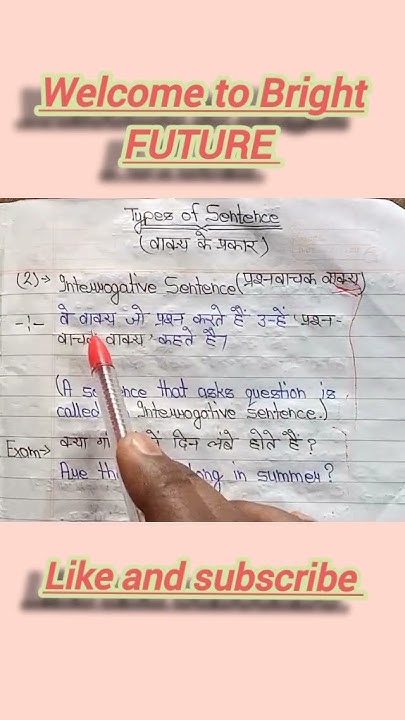 Welcome to Bright
FUTURE
Types of Sentence
(वाक्य के प्रकार)
(2)→ Interrogative Sentence (प्रश्नवाचक वाक्य)
-:- वे वाक्य जो प्रश्न करते हैं उन्हें 'प्रश्न-
वाचक वाक्य' कहते हैं।
(A that asks question is
called Interrogative Sentence.)
Exam→ क्या में दिन लंबे होते हैं ?
Are long in summer?
Like and subscribe